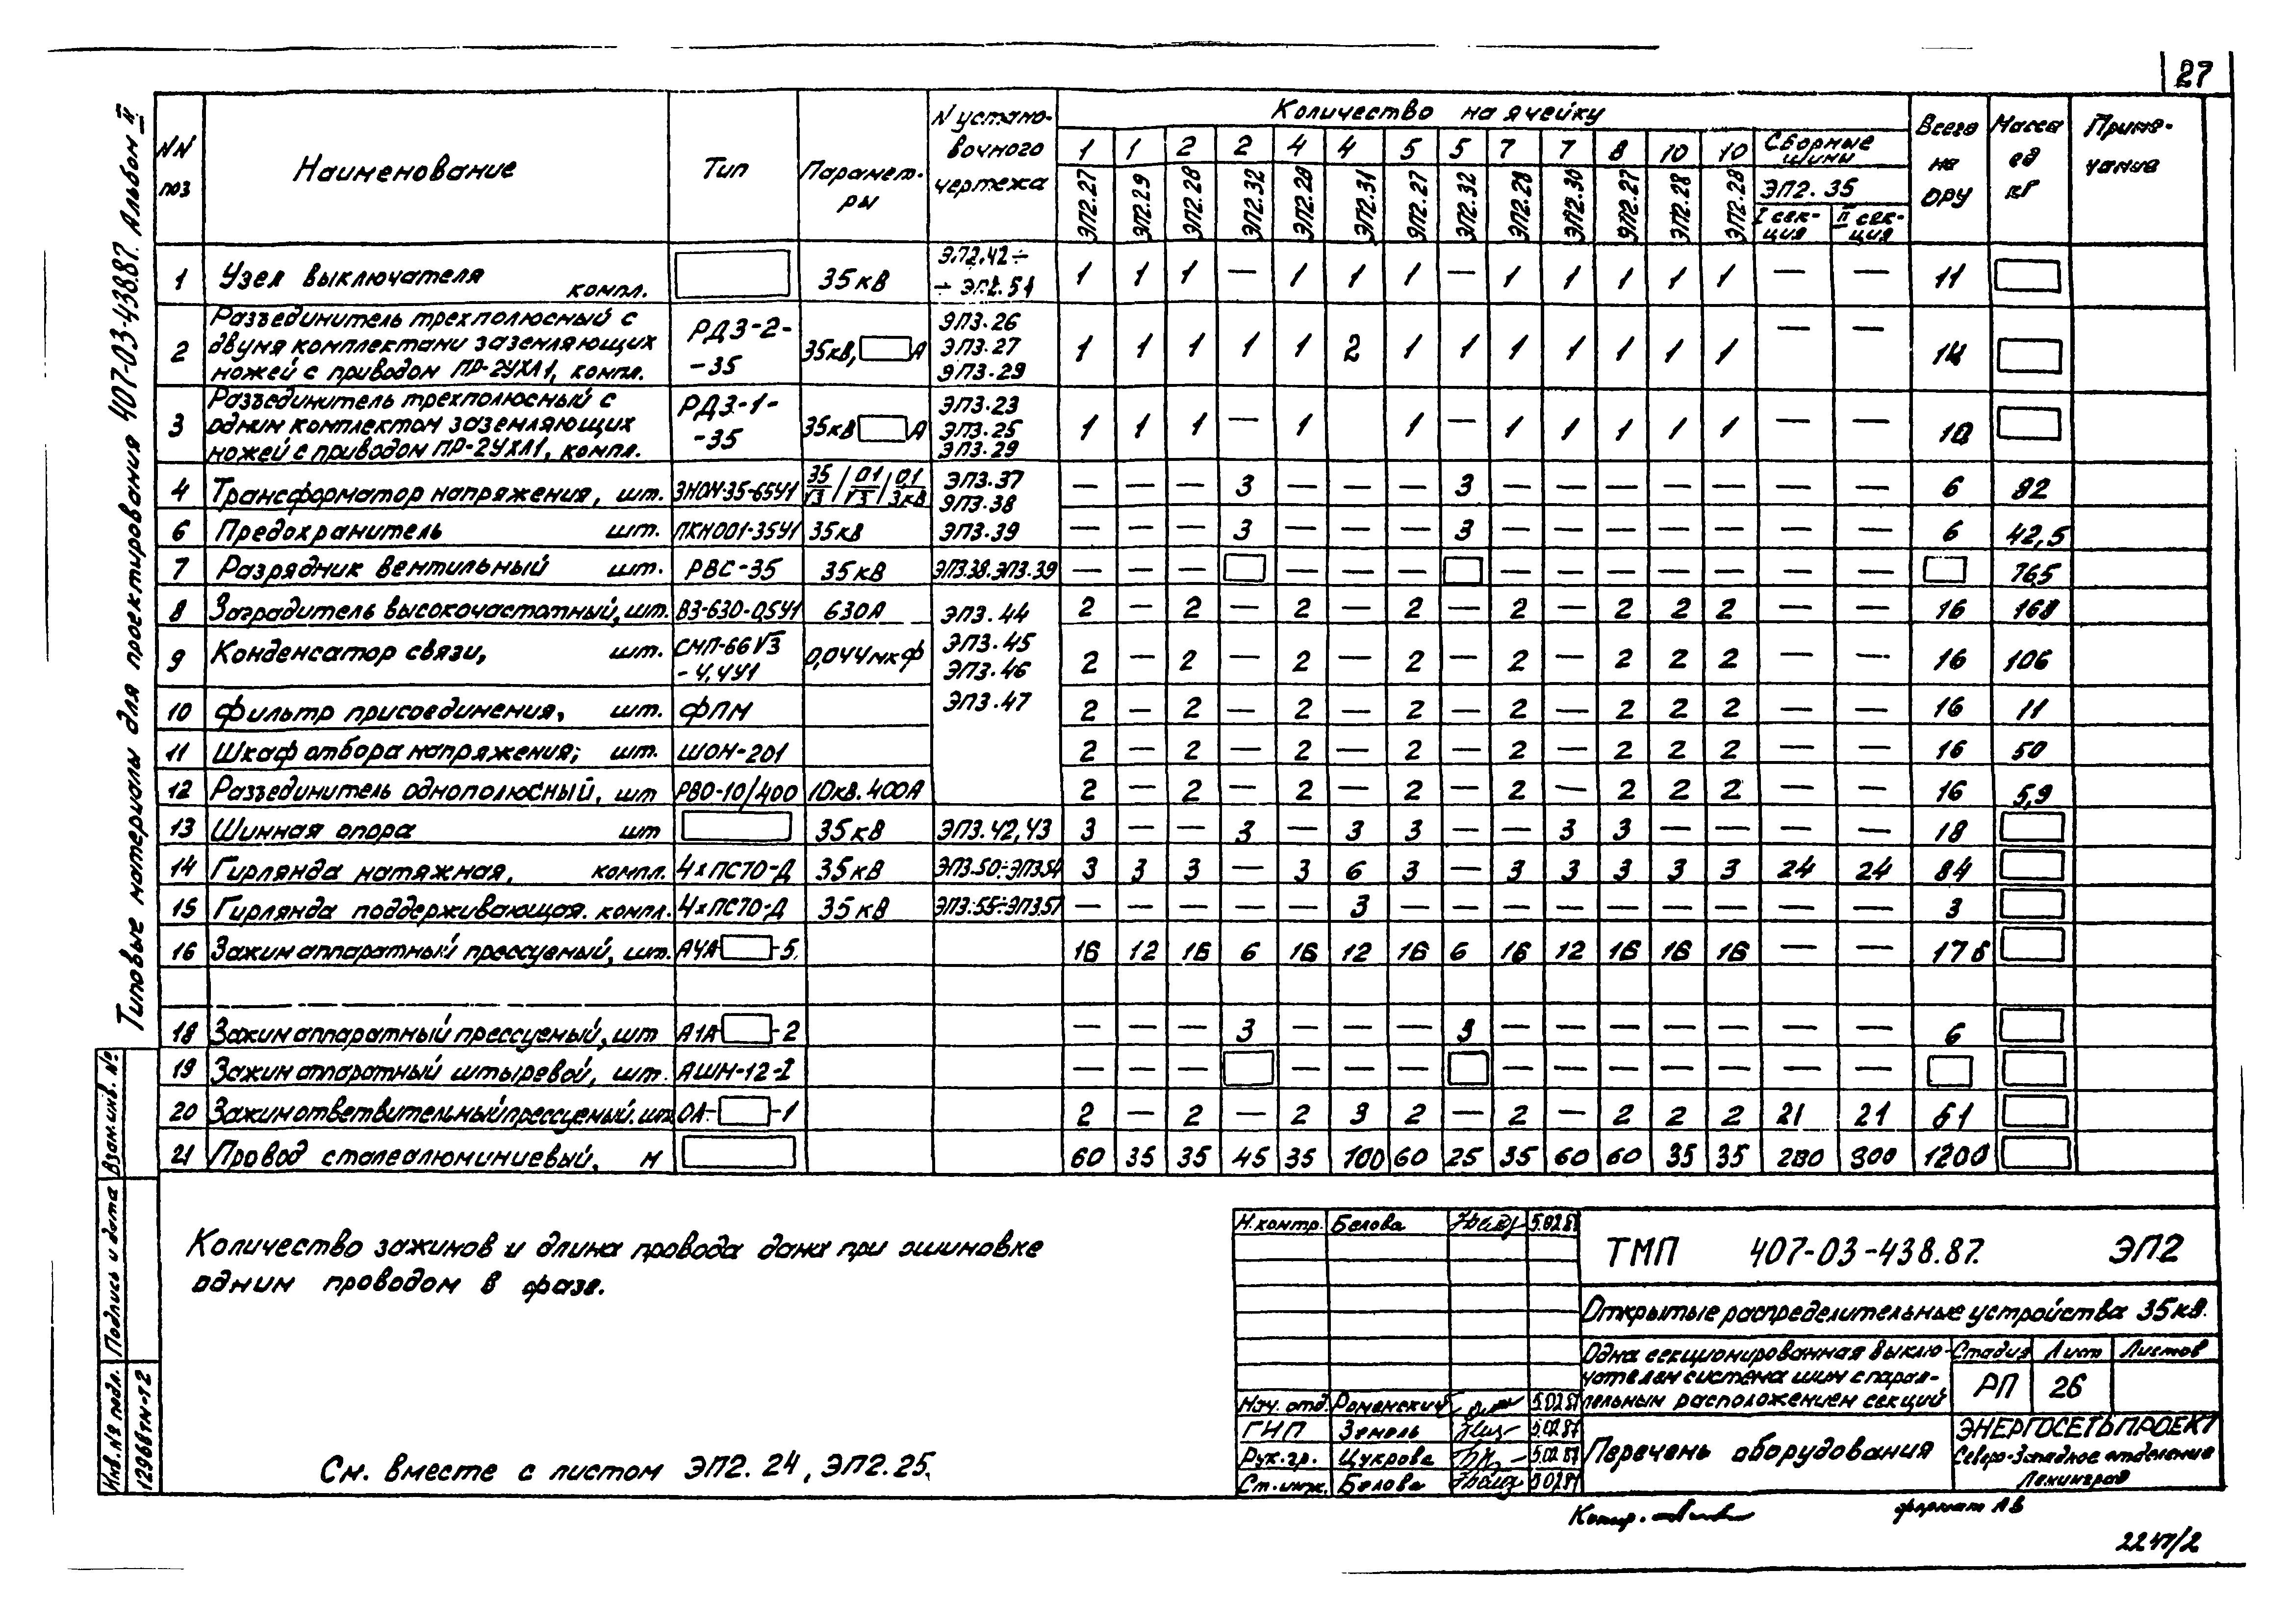 27
Типовые материалы для проектирования 407-03-438.87. Альбом II
NN поз
Наименование
Тип
Параметры
N установочного чертежа
Количество на ячейку
Всего на ОРУ
Масса ед кг
Примечание
1 1 2 2 4 4 5 5 7 7 8 10 10 Сборные шины
ЭП2.27 ЭП2.29 ЭП2.28 ЭП2.32 ЭП2.28 ЭП2.31 ЭП2.27 ЭП2.32 ЭП2.28 ЭП2.30 ЭП2.27 ЭП2.28 ЭП2.28 ЭП2.35
I секция II секция
1 Узел выключателя компл. 35кВ ЭП2.42÷ ÷ЭП2.54 1 1 1 — 1 1 1 — 1 1 1 1 1 — — 11
2 Разъединитель трехполюсный с двумя комплектами заземляющих ножей с приводом ПР-2УХЛ1, компл. РДЗ-2-35 35кВ, А ЭП3.26 ЭП3.27 ЭП3.29 1 1 1 1 1 2 1 1 1 1 1 1 1 — — 14
3 Разъединитель трехполюсный с одним комплектом заземляющих ножей с приводом ПР-2УХЛ1, компл. РДЗ-1-35 35кВ А ЭП3.23 ЭП3.25 ЭП3.29 1 1 1 — 1 1 — 1 1 1 1 1 — — 10
4 Трансформатор напряжения, шт. ЗНОМ-35-65У1 35/√3 / 0.1/√3 / 0,1/3кВ ЭП3.37 ЭП3.38 — — — 3 — — — 3 — — — — — — — 6 92
6 Предохранитель шт. ПКН001-35У1 35кВ ЭП3.39 — — — 3 — — — 3 — — — — — — — 6 42,5
7 Разрядник вентильный шт. РВС-35 35кВ ЭП3.38.ЭП3.39 — — — — — — — — — — — — — 76,5
8 Заградитель высокочастотный, шт. ВЗ-630-0,5У1 630А ЭП3.44 2 — 2 — 2 — 2 — 2 — 2 2 2 — — 16 168
9 Конденсатор связи, шт. СМП-66√3 -4,4У1 0,044мкф ЭП3.45 ЭП3.46 2 — 2 — 2 — 2 — 2 — 2 2 2 — — 16 106
10 Фильтр присоединения, шт. ФПМ ЭП3.47 2 — 2 — 2 — 2 — 2 — 2 2 2 — — 16 11
11 Шкаф отбора напряжения, шт. ШОН-201 2 — 2 — 2 — 2 — 2 — 2 2 2 — — 16 50
12 Разъединитель однополюсный, шт РВО-10/400 10кВ.400А 2 — 2 — 2 — 2 — 2 — 2 2 2 — — 16 5,9
13 Шинная опора шт 35кВ ЭП3.42,43 3 — — 3 — 3 3 — — 3 3 — — — — 18
14 Гирлянда натяжная, компл. 4хПС70-Д 35кВ ЭП3.50÷ЭП3.54 3 3 3 — 3 6 3 — 3 3 3 3 3 24 24 84
15 Гирлянда поддерживающая. компл. 4хПС70-Д 35кВ ЭП3.55÷ЭП3.57 — — — — — 3 — — — — — — — — — 3
16 Зажим аппаратный прессуемый, шт. А4А -5. 16 12 16 6 16 12 16 6 16 12 16 16 16 — — 176
18 Зажим аппаратный прессуемый, шт А1А -2 — — — 3 — — — 3 — — — — — — — 6
19 Зажим аппаратный штыревой, шт. АШМ-12-1 — — — — — — — — — — — — —
20 Зажим ответвительный прессуемый. шт. ОА- -1 2 — 2 — 2 3 2 — 2 — 2 2 2 21 21 61
21 Провод сталеалюминиевый, м 60 35 35 45 35 100 60 25 35 60 60 35 35 280 300 1200
Количество зажимов и длина провода дана при ошиновке
одним проводом в фазе.
См. вместе с листом ЭП2.24, ЭП2.25.
Взам.инв. №
Подпись и дата
Инв.№ подл.
12968тм-т2
Н.контр. Белова 5.02.87
Нач. отд. Роменский 5.02.87
ГИП Земель 5.02.87
Рук.гр. Цукрова 5.02.87
Ст.инж. Белова 5.02.87
ТМП 407-03-438.87. ЭП2
Открытые распределительные устройства 35кВ.
Одна секционированная выключателем система шин с параллельным расположением секций
Стадия Лист Листов
РП 26
Перечень оборудования
ЭНЕРГОСЕТЬПРОЕКТ
Северо-Западное отделение
Ленинград
Копир.
формат А3